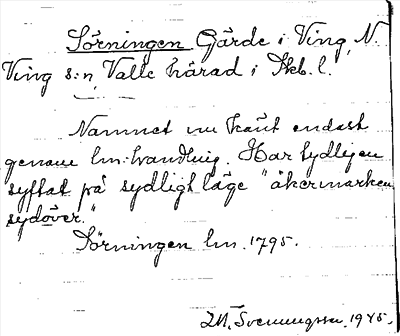 Sörningen Gärde i Ving, N.
Ving s:n, Valle härad i Skb. l.
Namnet nu känt endast
genom lm.-handling. Har tydligen
syftat på sydligt läge "åkermarken
sydöver."
Sörningen lm. 1795.
Svenungsson 1945.